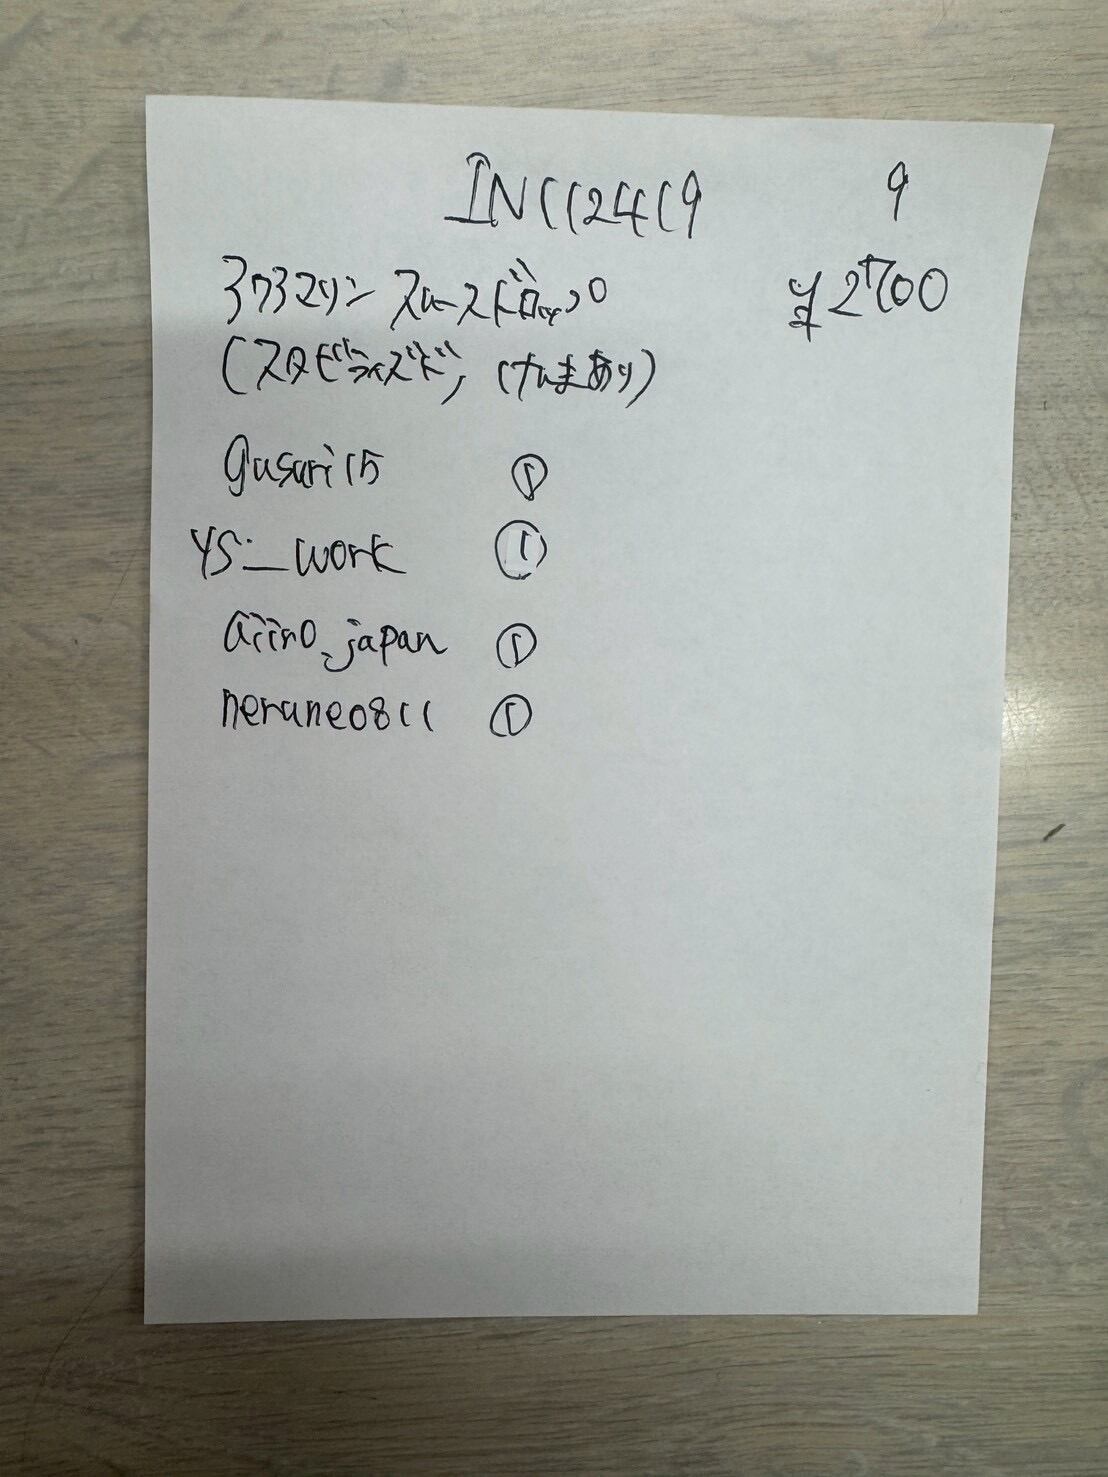 INC112419 9
アクアマリン スムースドロップ ¥2700
(スタビライズド, けんまあり)
gusari15 ①
YS_work ①
aiiro_japan ①
nerune0811 ①